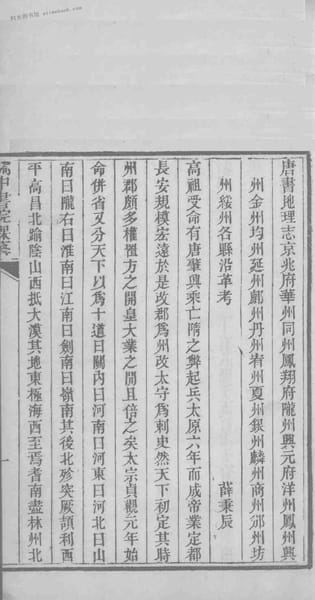 唐書地理志京兆府華州同州鳳翔府隴州興元府洋州鳳州興
州金州均州延州鄜州丹州宥州夏州銀州麟州商州邠州坊
州綏州各縣沿革考
薛秉辰
高祖受命有唐肇興乘亡隋之弊起兵太原六年而成帝業定都
長安規模宏遠於是改郡為州改太守為刺史然天下初定其時
州郡頗多權置方之開皇大業之間且倍之矣太宗貞觀元年始
命併省又分天下以為十道曰關內曰河南曰河東曰河北曰山
南曰隴右曰淮南曰江南曰劍南曰嶺南其後北殄突厥頡利西
平高昌北踰陰山西抵大漠其地東極海西至焉耆南盡林州北
關中書院課藝
一